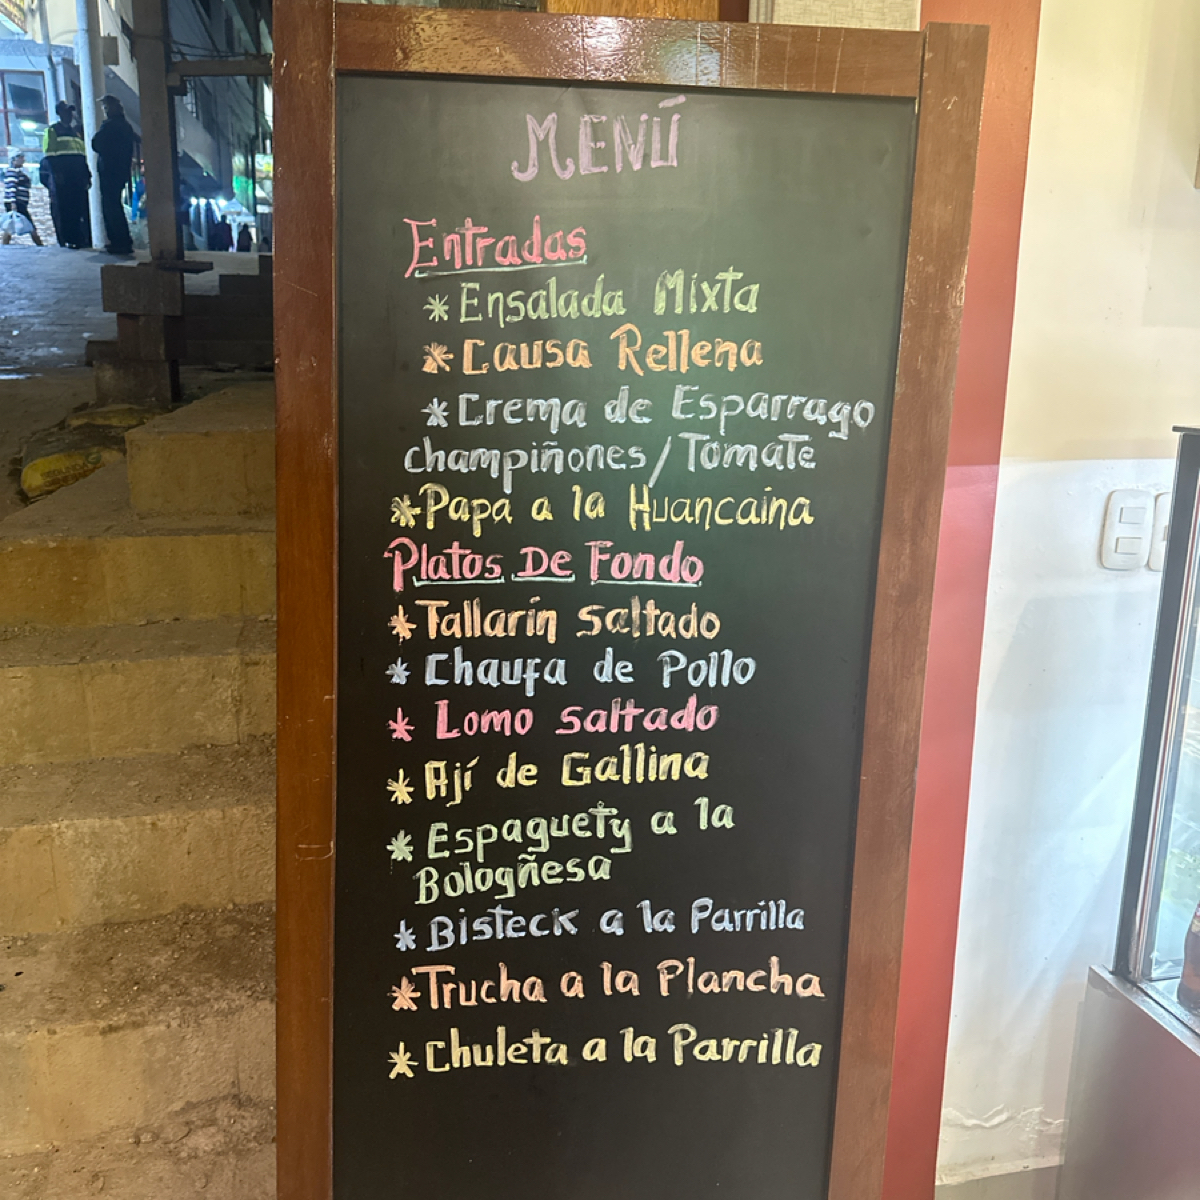 MENÚ
Entradas
* Ensalada Mixta
* Causa Rellena
* Crema de Esparrago
champiñones / Tomate
* Papa a la Huancaina
Platos De Fondo
* Tallarin saltado
* Chaufa de Pollo
* Lomo saltado
* Ají de Gallina
* Espaguety a la
Bologñesa
* Bisteck a la Parrilla
* Trucha a la Plancha
* Chuleta a la Parrilla